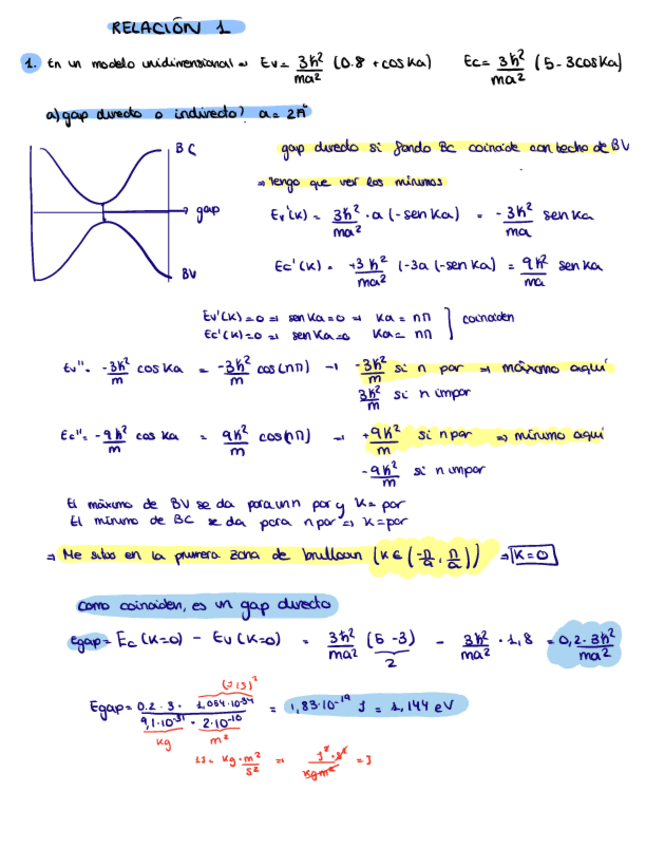 RELACIÓN 1
1. En un modelo unidimensional ⇒ Ev = 3ħ²/ma² (0.8 + cos Ka) Ec = 3ħ²/ma² (5 - 3cos Ka)
a) gap directo o indirecto? a = 2Å
BC
gap directo si fondo BC coincide con techo de BV
⇒ tengo que ver los mínimos
→ gap
Ev'(K) = 3ħ²/ma² · a (-sen Ka) = -3ħ²/ma sen Ka
BV
Ec'(K) = +3ħ²/ma² (-3a (-sen Ka) = 9ħ²/ma sen Ka
Ev'(K) = 0 ⇒ sen Ka = 0 ⇒ Ka = nπ
Ec'(K) = 0 ⇒ sen Ka = 0 Ka = nπ
coinciden
Ev'' = -3ħ²/m cos Ka = -3ħ²/m cos(nπ) → -3ħ²/m si n par ⇒ máximo aquí
3ħ²/m si n impar
Ec'' = -9ħ²/m cos Ka = 9ħ²/m cos(nπ) → +9ħ²/m si n par ⇒ mínimo aquí
-9ħ²/m si n impar
El máximo de BV se da para un n par y K = par
El mínimo de BC se da para n par ⇒ K = par
⇒ Me sitúo en la primera zona de brillouin (K ∈ (-π/a, π/a)) ⇒ K = 0
como coinciden, es un gap directo
Egap = Ec (K=0) - Ev (K=0) = 3ħ²/ma² (5 - 3)/2 - 3ħ²/ma² · 1,8 = 0,2 · 3ħ²/ma²
(J·s)²
Egap = 0.2 · 3 · 1,054·10⁻³⁴ / 9,1·10⁻³¹ · 2·10⁻¹⁰ = 1,83·10⁻¹⁹ J = 1,144 eV
kg m²
1J = kg · m²/s² ⇒ J² · s²/kg m² = J